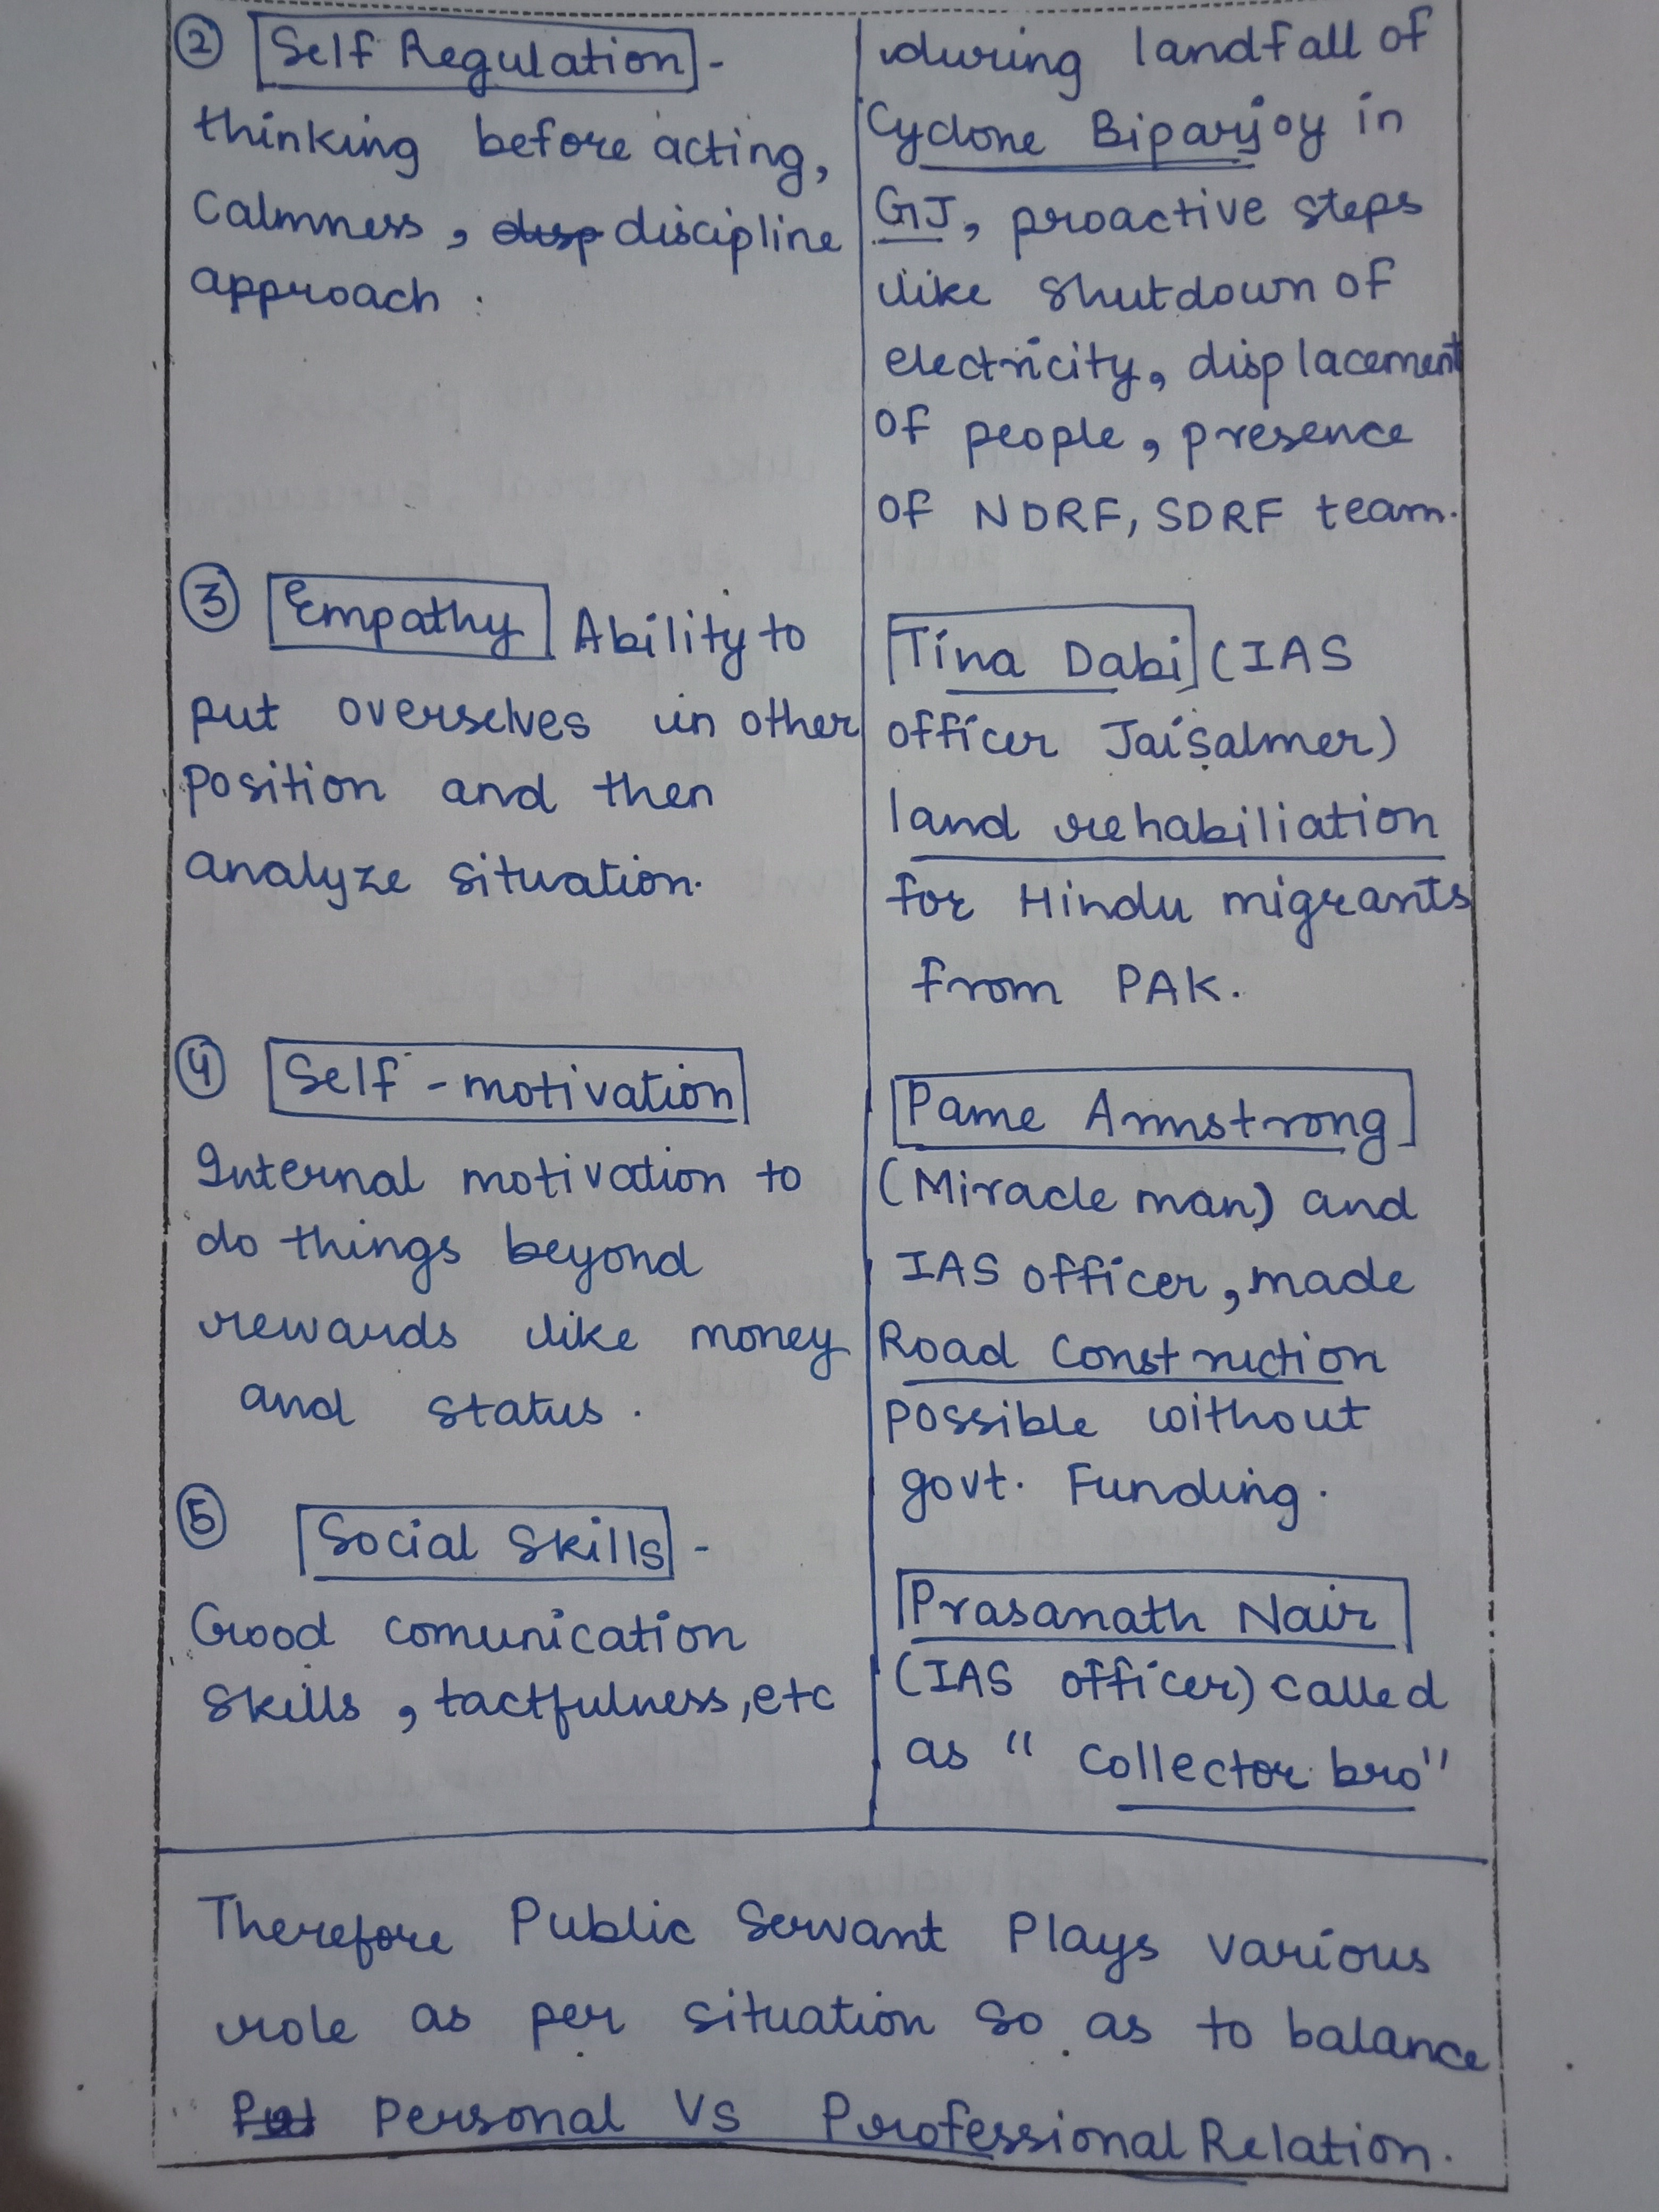 ② Self Regulation -
thinking before acting,
Calmness, disp discipline
approach.
③ Empathy Ability to
put overselves in other
position and then
analyze situation.
④ Self - motivation
Internal motivation to
do things beyond
rewards like money
and status.
⑤ Social Skills -
Good comunication
skills, tactfulness, etc
during landfall of
Cyclone Biparjoy in
GJ, proactive steps
like shutdown of
electricity, displacement
of people, presence
of NDRF, SDRF team.
Tina Dabi (IAS
officer Jaisalmer)
land rehabiliation
for Hindu migrants
from PAK.
Pame Armstrong
(Miracle man) and
IAS officer, made
Road Construction
possible without
govt. Funding.
Prasanath Nair
(IAS officer) called
as "Collector bro"
Therefore Public Servant Plays various
role as per situation so as to balance
Personal Vs Professional Relation.